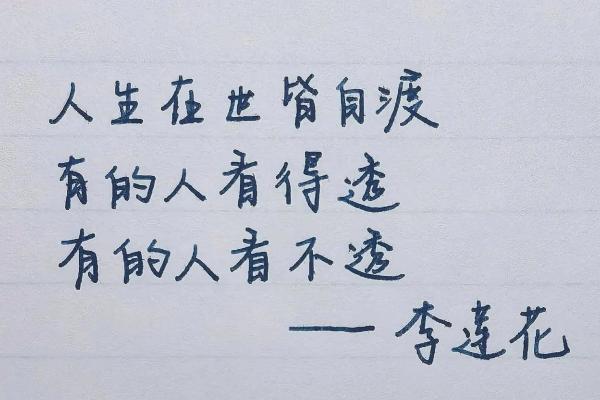 人生在世皆自渡
有的人看得透
有的人看不透
——李莲花